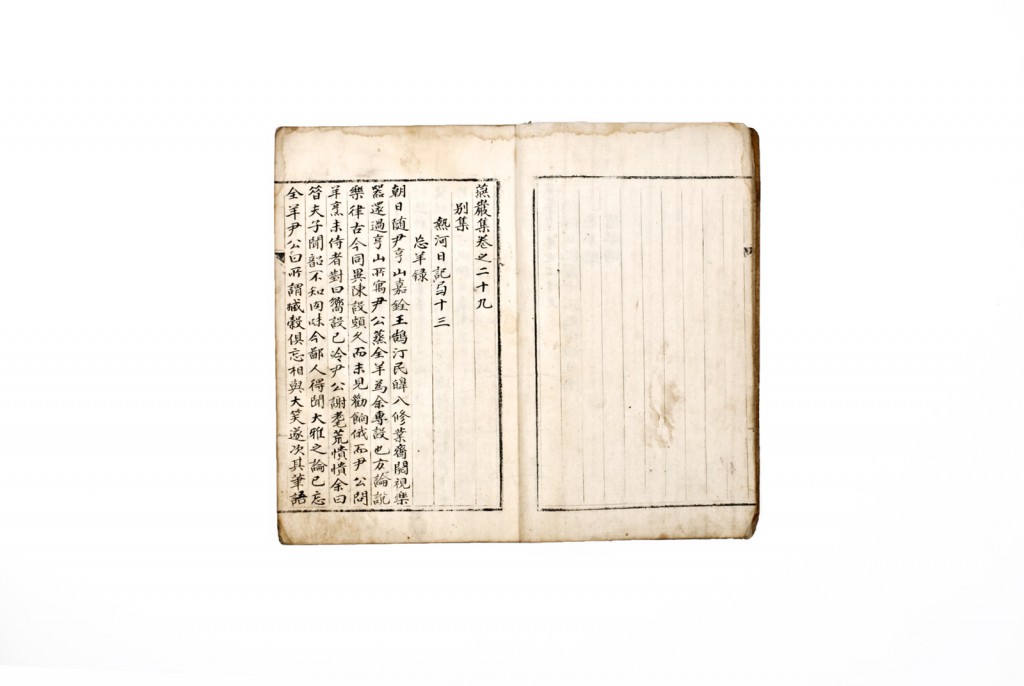 燕巖集卷之二十九
別集
熱河日記𢎥十三
忘羊録
朝日随尹亨山嘉銓王鵠汀民皥入修業齋閱視樂
器還過亨山所寓尹公蒸全羊為余專設也方論說
樂律古今同異陳設頗久而未見勸餉俄而尹公問
羊烹未侍者對曰嚮設已冷尹公謝耄荒憒憒余曰
昔夫子聞韶不知肉味今鄙人得聞大雅之論已忘
全羊尹公曰所謂臧穀俱忘相與大笑遂次其筆語